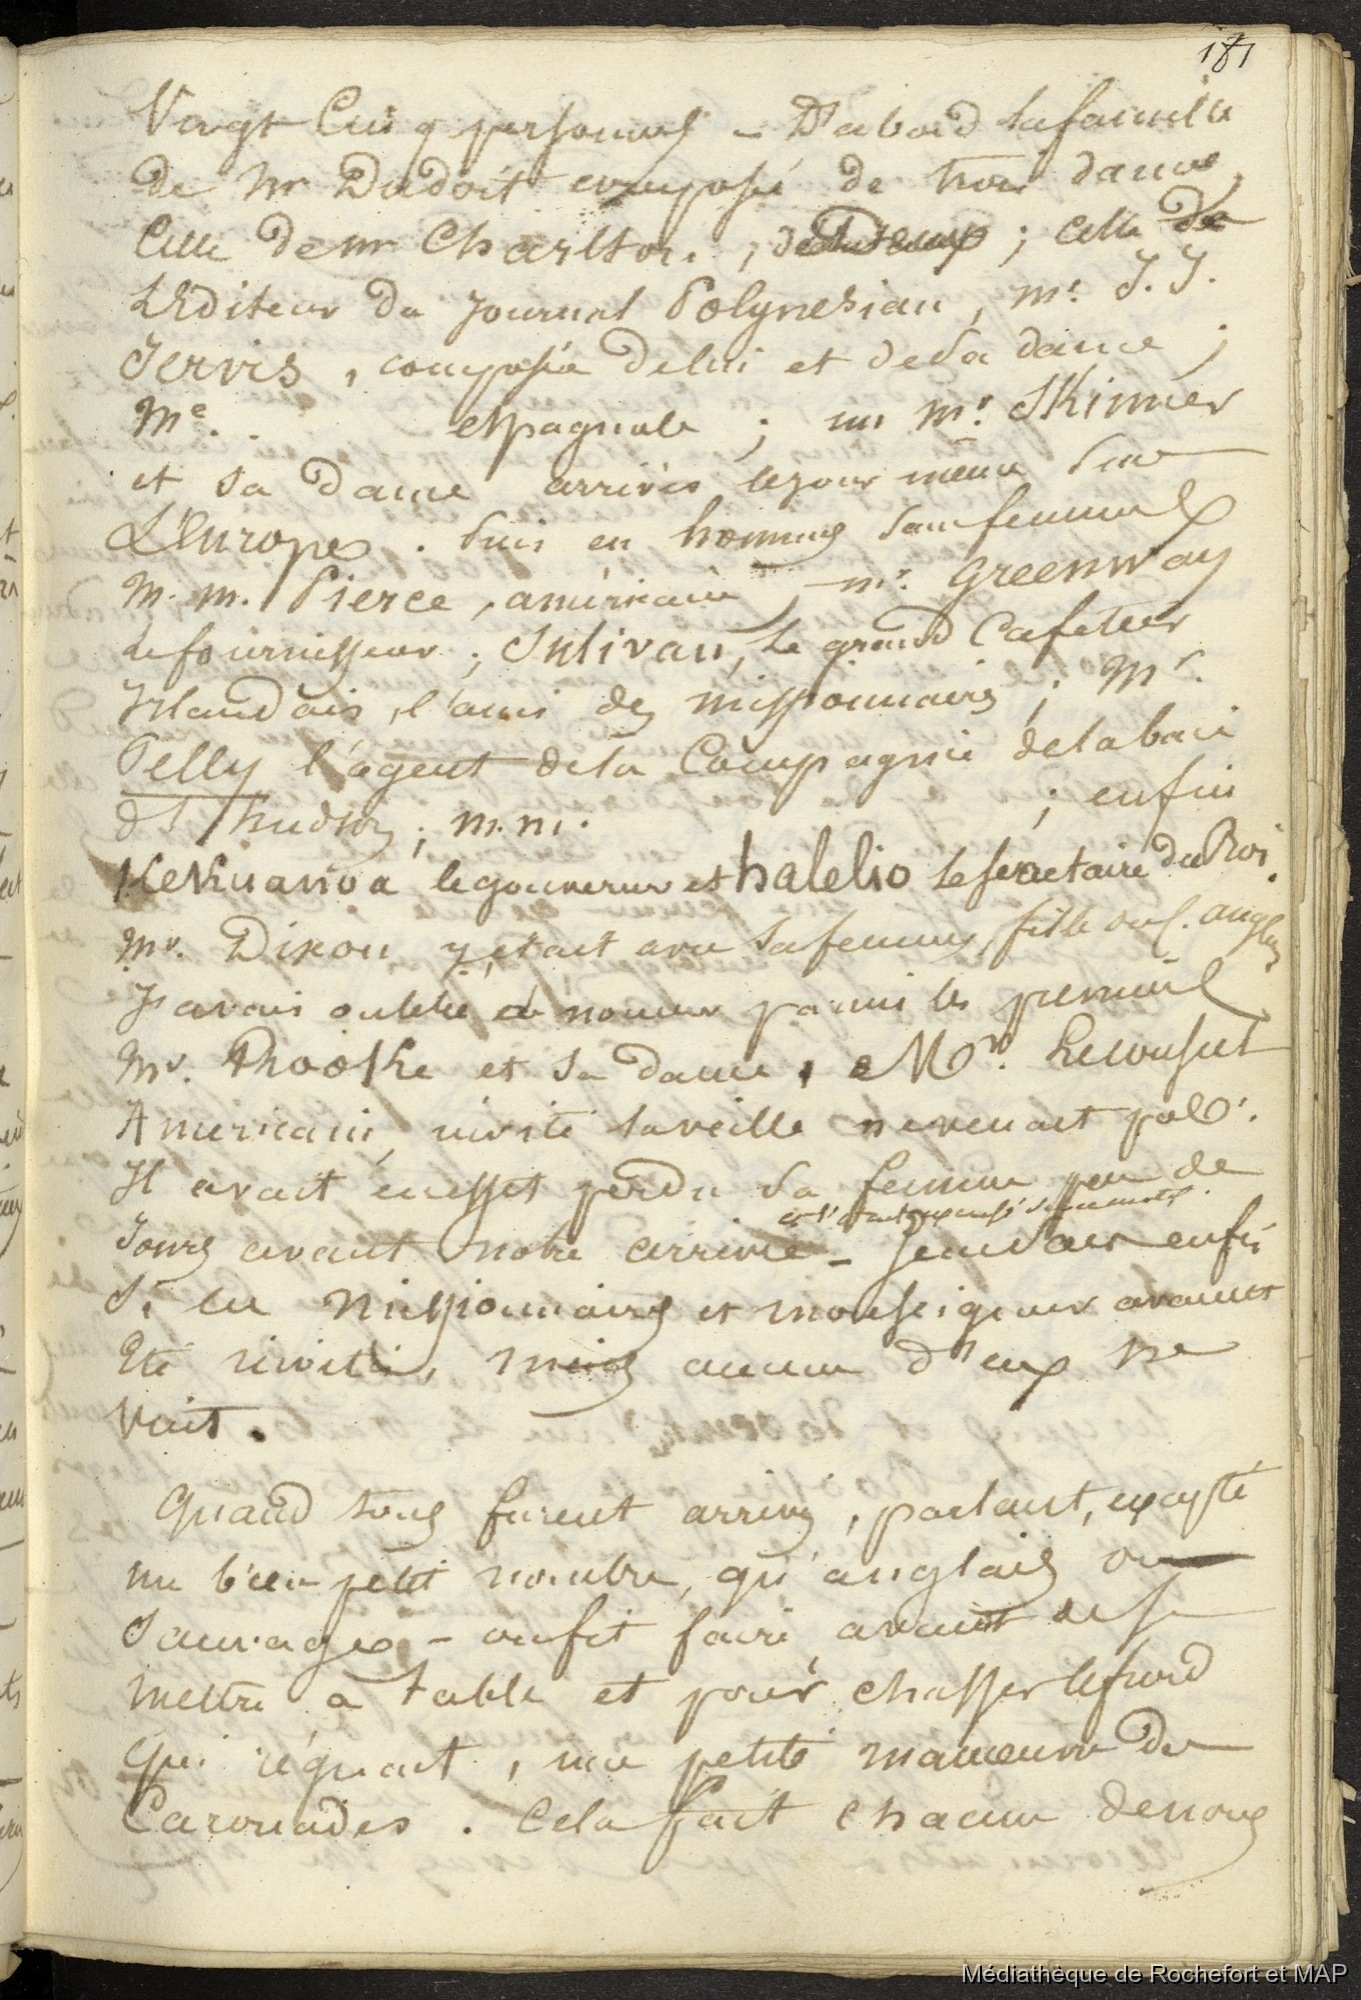 181
Vingt Cinq personnes – D'abord la famille
de Mr Dudoit composée de trois dames,
Celle de mr Charlton, ; celle de
L'Editeur du Journal Polynesian, mr. J. J.
Jervis, composée de lui et de sa dame ;
Me. . espagnole ; un mr. Skinner
et sa dame arrivés le jour même de
L'Europe. Puis en hommes sans femmes
M. M. Pierce, américain, – mr. Greenway
Le fournisseur ; Sulivan, Le grand Cafetier
Irlandais, l'ami des missionnaires ; Mr.
Pelly l'agent de la Compagnie de la baie
d'hudson ; m. m. ; enfin
Kekuanoa le gouverneur et halelio le secrétaire du Roi.
Mr. Dixon y était avec sa femme, fille du C. anglais
J'avais oublié de nommer parmi les premiers
Mr. Rhooke et sa dame, Mr. Le consul
Américain, invité la veille ne venait pas.
Il avait en effet perdu sa femme peu de
et s'était excusé
Jours avant notre arrivée – Je ne sais enfin
Si les Missionnaires et monseigneur avaient
Eté invités, mais aucun d'eux ne
Vint.
Quand tous furent arrivés, parlant, excepté
un bien petit nombre, qu'anglais ou
Sauvages – on fit faire, avant de se
mettre à table et pour chasser le froid
qui régnait, une petite manoeuvre de
Caronades. Cela fait chacun de nous
Médiathèque de Rochefort et MAP